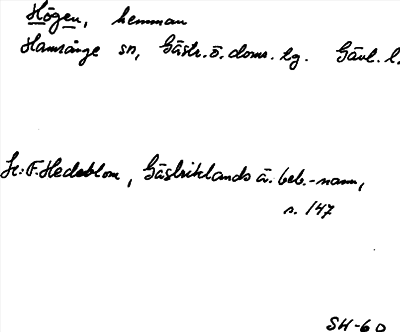 Högen, hemman
Hamrånge sn, Gästr. ö. doms. lg. Gävl. l.
Se: F. Hedeblom, Gästriklands ä. beb.-namn,
s. 147
SH-60